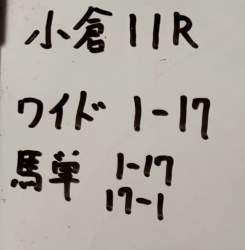 小倉11R
ワイド 1-17
馬単 1-17
17-1